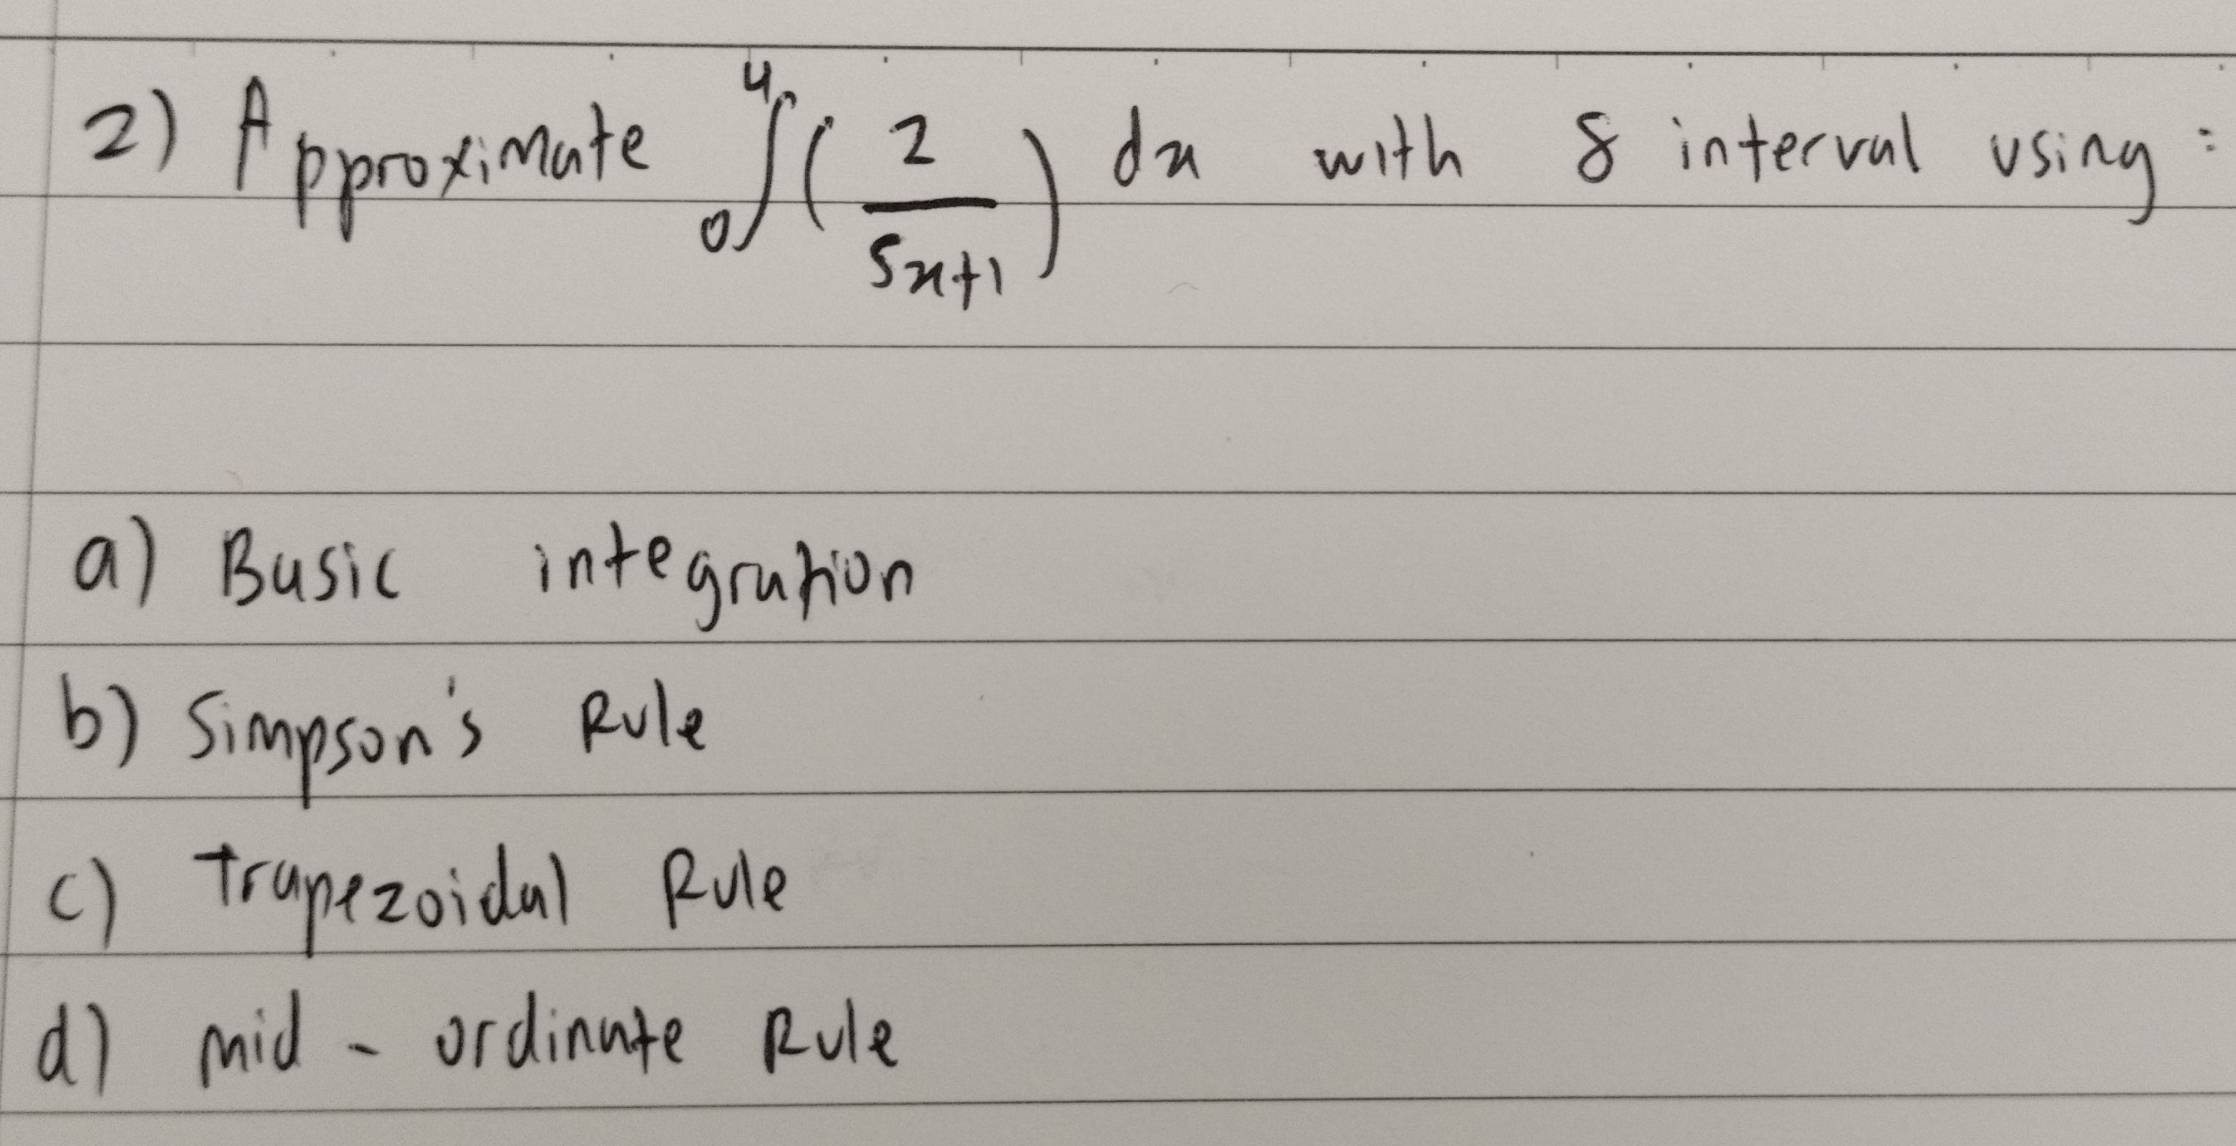 2) Approximate ₀∫⁴ (2/(5x+1)) dx with 8 interval using :
a) Basic integration
b) Simpson's Rule
c) Trapezoidal Rule
d) mid - ordinate Rule